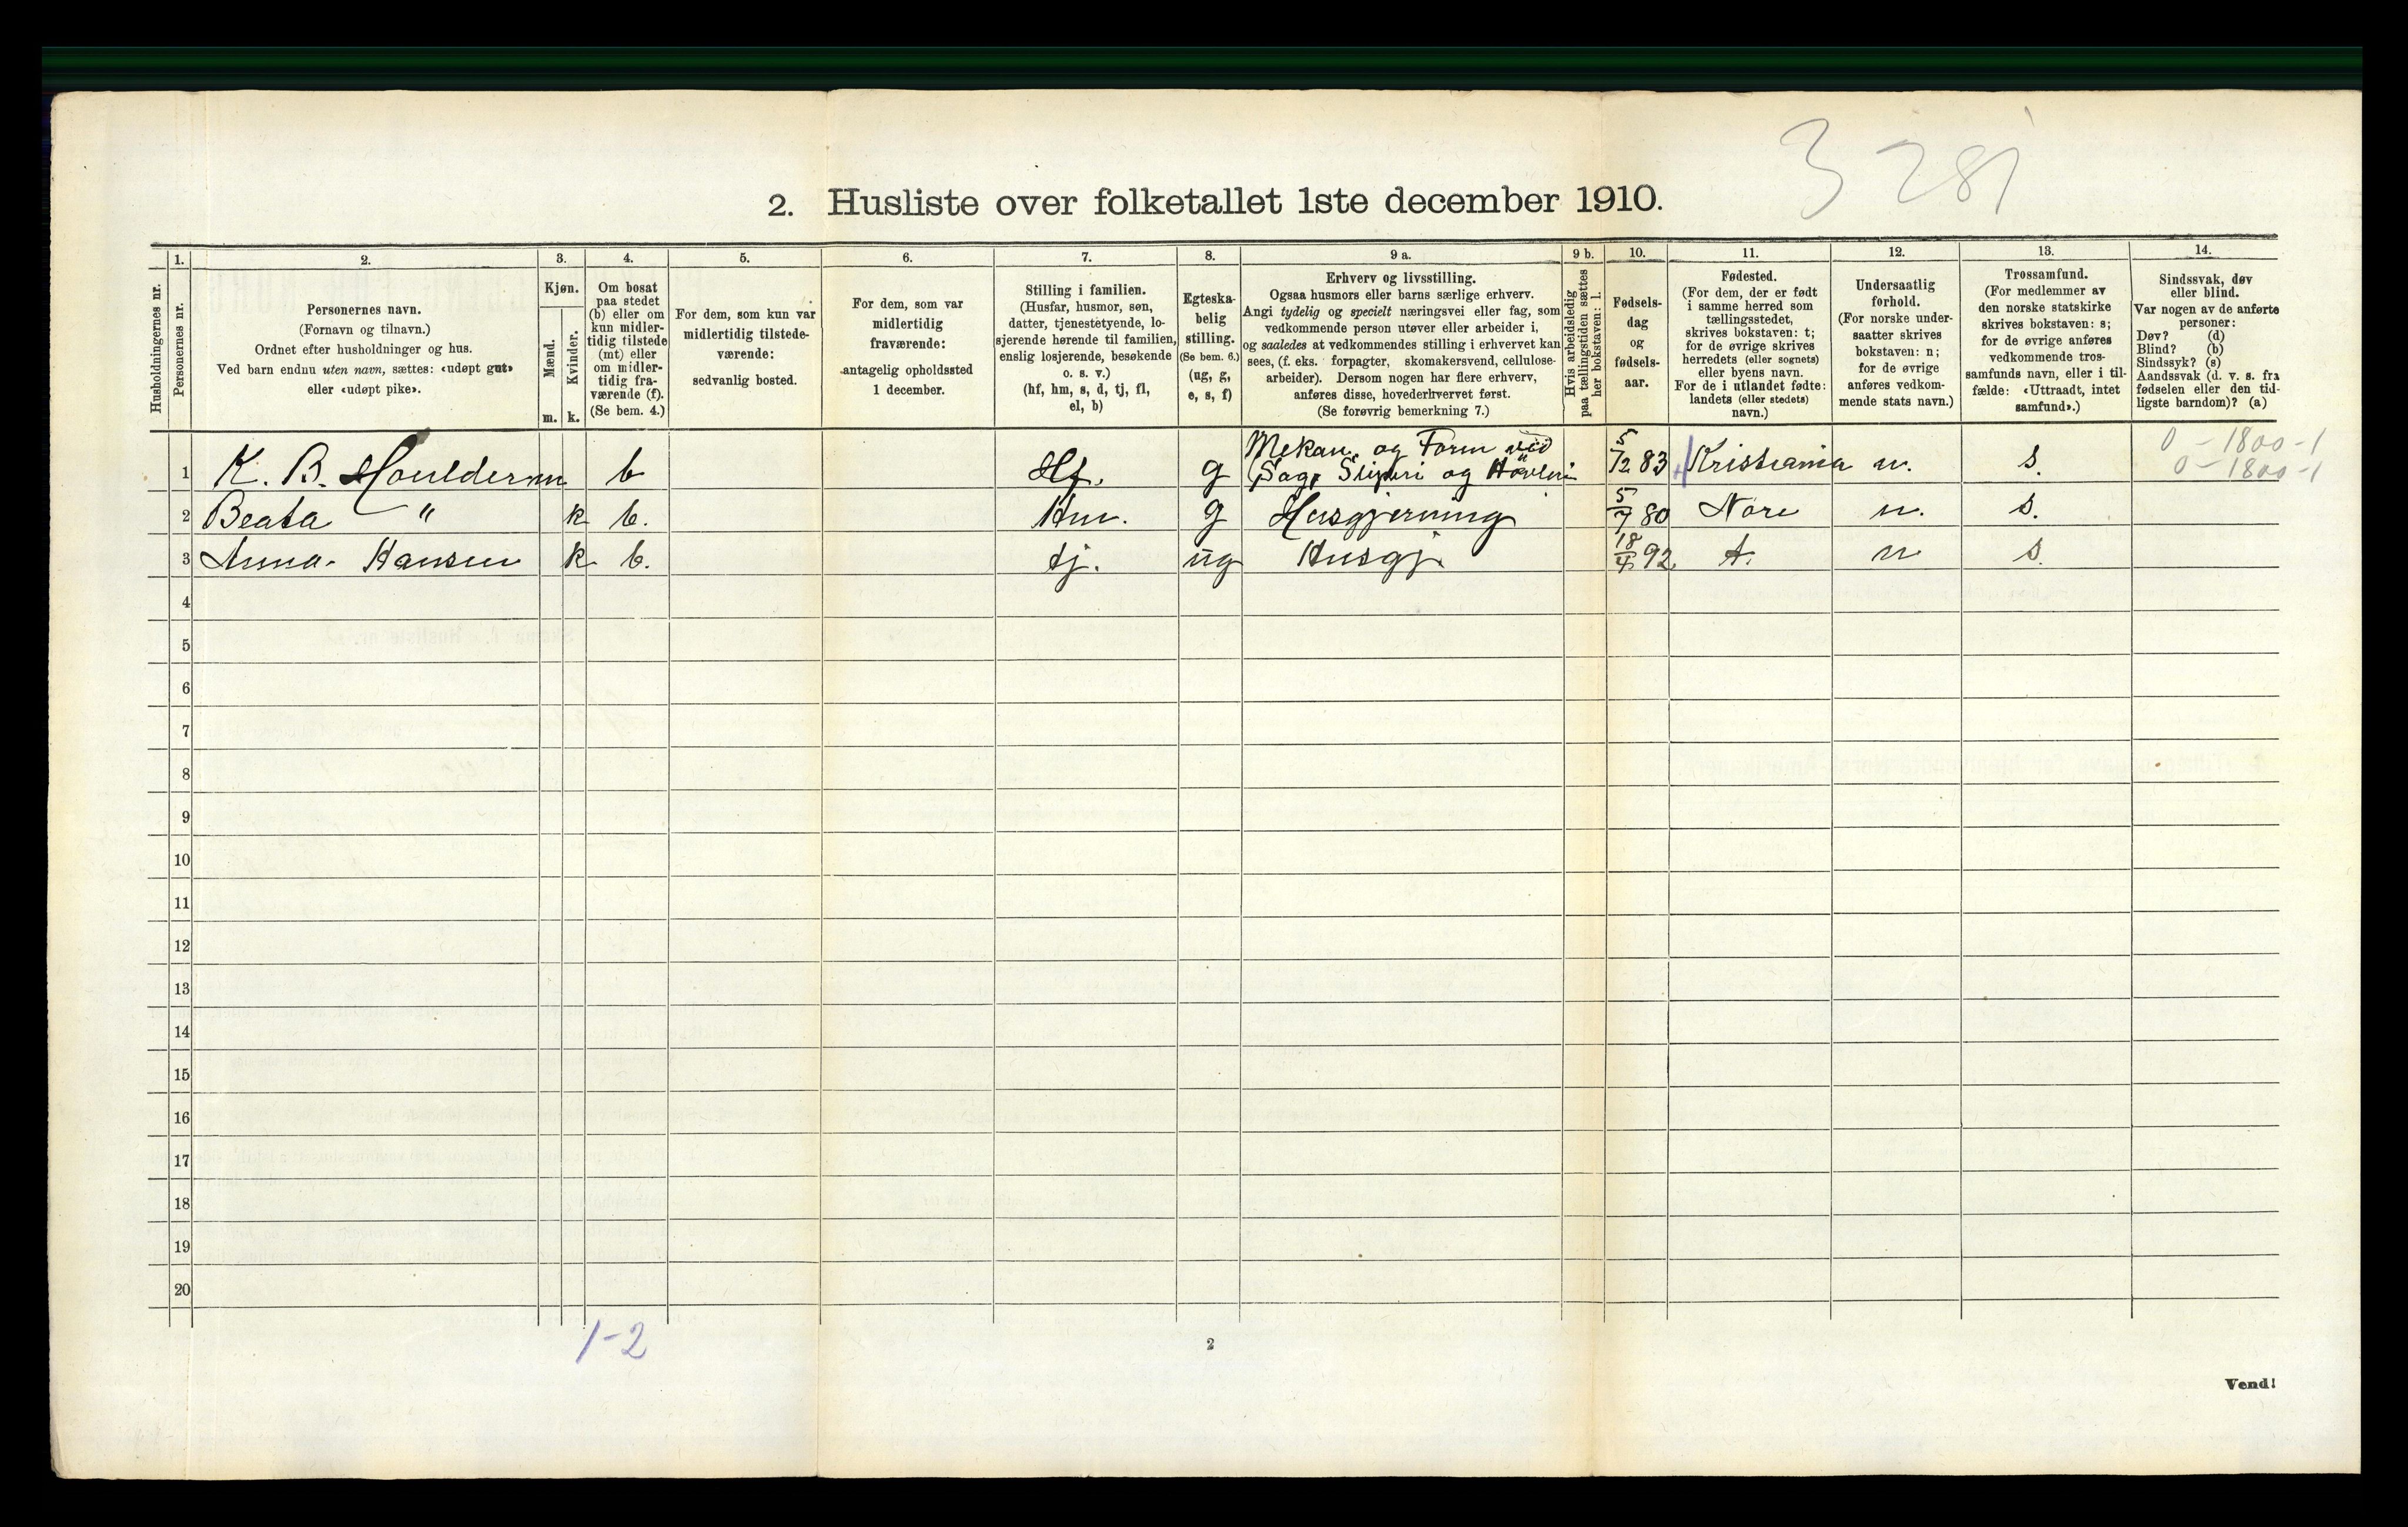 3 281
2. Husliste over folketallet 1ste december 1910.
Husholdningernes nr.
1.
Personernes nr.
2.
Personernes navn.
(Fornavn og tilnavn.)
Ordnet efter husholdninger og hus.
Ved barn endnu uten navn, sættes: «udøpt gut»
eller «udøpt pike».
3.
Kjøn.
Mænd.
Kvinder.
m. k.
4.
Om bosat
paa stedet
(b) eller om
kun midler-
tidig tilstede
(mt) eller
om midler-
tidig fra-
værende (f).
(Se bem. 4.)
5.
For dem, som kun var
midlertidig tilstede-
værende:
sedvanlig bosted.
6.
For dem, som var
midlertidig
fraværende:
antagelig opholdssted
1 december.
7.
Stilling i familien.
(Husfar, husmor, søn,
datter, tjenestetyende, lo-
sjerende hørende til familien,
enslig losjerende, besøkende
o. s. v.)
(hf, hm, s, d, tj, fl,
el, b)
8.
Egteska-
belig
stilling.
(Se bem. 6.)
(ug, g,
e, s, f)
9 a.
Erhverv og livsstilling.
Ogsaa husmors eller barns særlige erhverv.
Angi tydelig og specielt næringsvei eller fag, som
vedkommende person utøver eller arbeider i,
og saaledes at vedkommendes stilling i erhvervet kan
sees, (f. eks. forpagter, skomakersvend, cellulose-
arbeider). Dersom nogen har flere erhverv,
anføres disse, hovederhvervet først.
(Se forøvrig bemerkning 7.)
9 b.
Hvis arbeidsledig
paa tællingstiden sættes
her bokstaven: l.
10.
Fødsels-
dag
og
fødsels-
aar.
11.
Fødested.
(For dem, der er født
i samme herred som
tællingsstedet,
skrives bokstaven: t;
for de øvrige skrives
herredets (eller sognets)
eller byens navn.
For de i utlandet fødte:
landets (eller stedets)
navn.)
12.
Undersaatlig
forhold.
(For norske under-
saatter skrives
bokstaven: n;
for de øvrige
anføres vedkom-
mende stats navn.)
13.
Trossamfund.
(For medlemmer av
den norske statskirke
skrives bokstaven: s;
for de øvrige anføres
vedkommende tros-
samfunds navn, eller i til-
fælde: «Uttraadt, intet
samfund».)
14.
Sindssvak, døv
eller blind.
Var nogen av de anførte
personer:
Døv? (d)
Blind? (b)
Sindssyk? (s)
Aandssvak (d. v. s. fra
fødselen eller den tid-
ligste barndom)? (a)
1 K. B. Moulder m b Hf. g Mekan. og Form ved Sag, Sliperi og Høvleri 5/12 83 Kristiania n. s. 0 - 1800 - 1
0 - 1800 - 1
2 Beata " k b. Hm. g Husgjerning 5/7 80 Nore n. s.
3 Anna Hansen k b. tj. ug Husgj. 18/4 92 t. n s.
4
5
6
7
8
9
10
11
12
13
14
15
16
17
18
19
20
1-2
2
Vend!